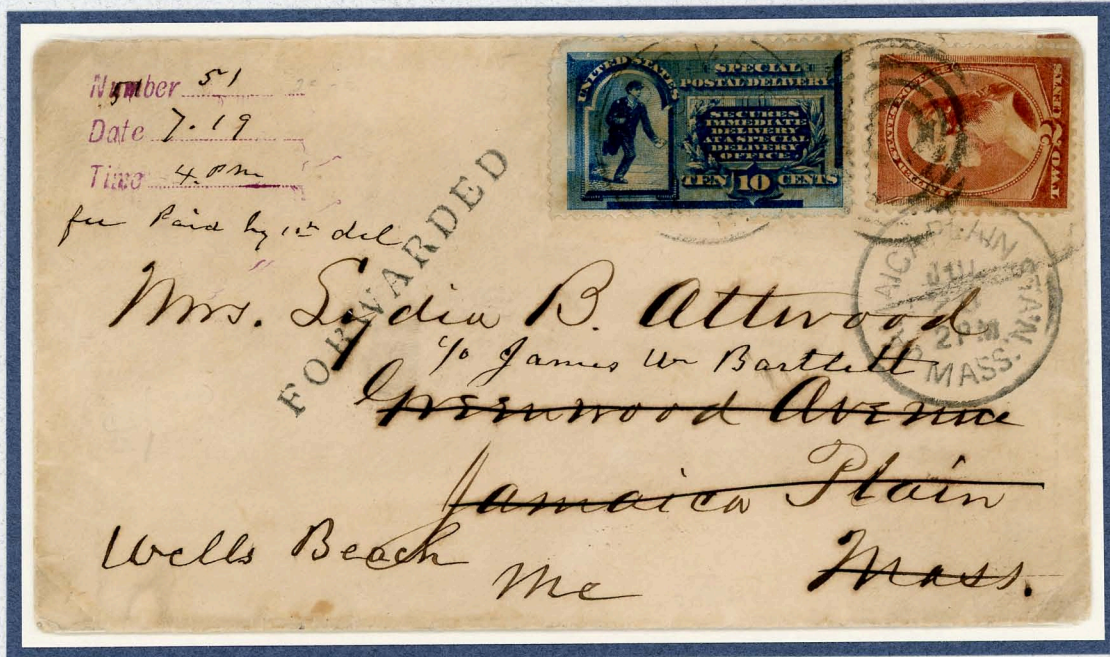 Number 51
Date 7.19
Time 4. PM
fee Paid by 1st del
FORWARDED
UNITED STATES
SPECIAL
POSTAL DELIVERY
SECURES
IMMEDIATE
DELIVERY
AT A SPECIAL
DELIVERY
OFFICE.
TEN 10 CENTS
TWO 2 CENTS
JAMAICA PLAIN STA'N.
JUL
2 PM.
MASS.
Mrs. Lydia B. Attwood
c/o James W Bartlett
Greenwood Avenue
Jamaica Plain
Mass.
Wells Beach
Me